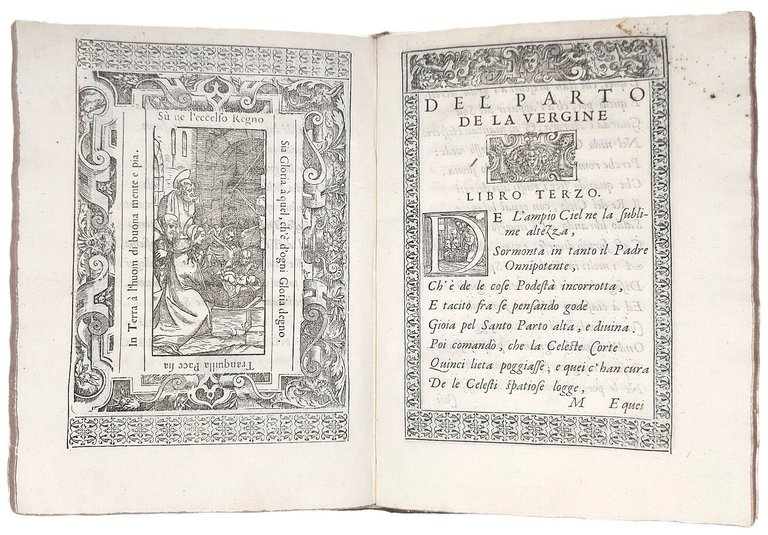 Sù ne l'eccelso Regno
Sia Gloria à quel, ch'è d'ogni Gloria degno.
Tranquilla Pace sia
In Terra à l'huom di buona mente e pia.
DEL PARTO
DE LA VERGINE
LIBRO TERZO.
DE L'ampio Ciel ne la subli-
me altezza,
Sormonta in tanto il Padre
Onnipotente,
Ch'è de le cose Podestà incorrotta,
E tacito fra se pensando gode
Gioia pel Santo Parto alta, e divina,
Poi comandò, che la Celeste Corte
Quinci lieta poggiasse, e quei c'han cura
De le Celesti spatiose logge,
M E quei